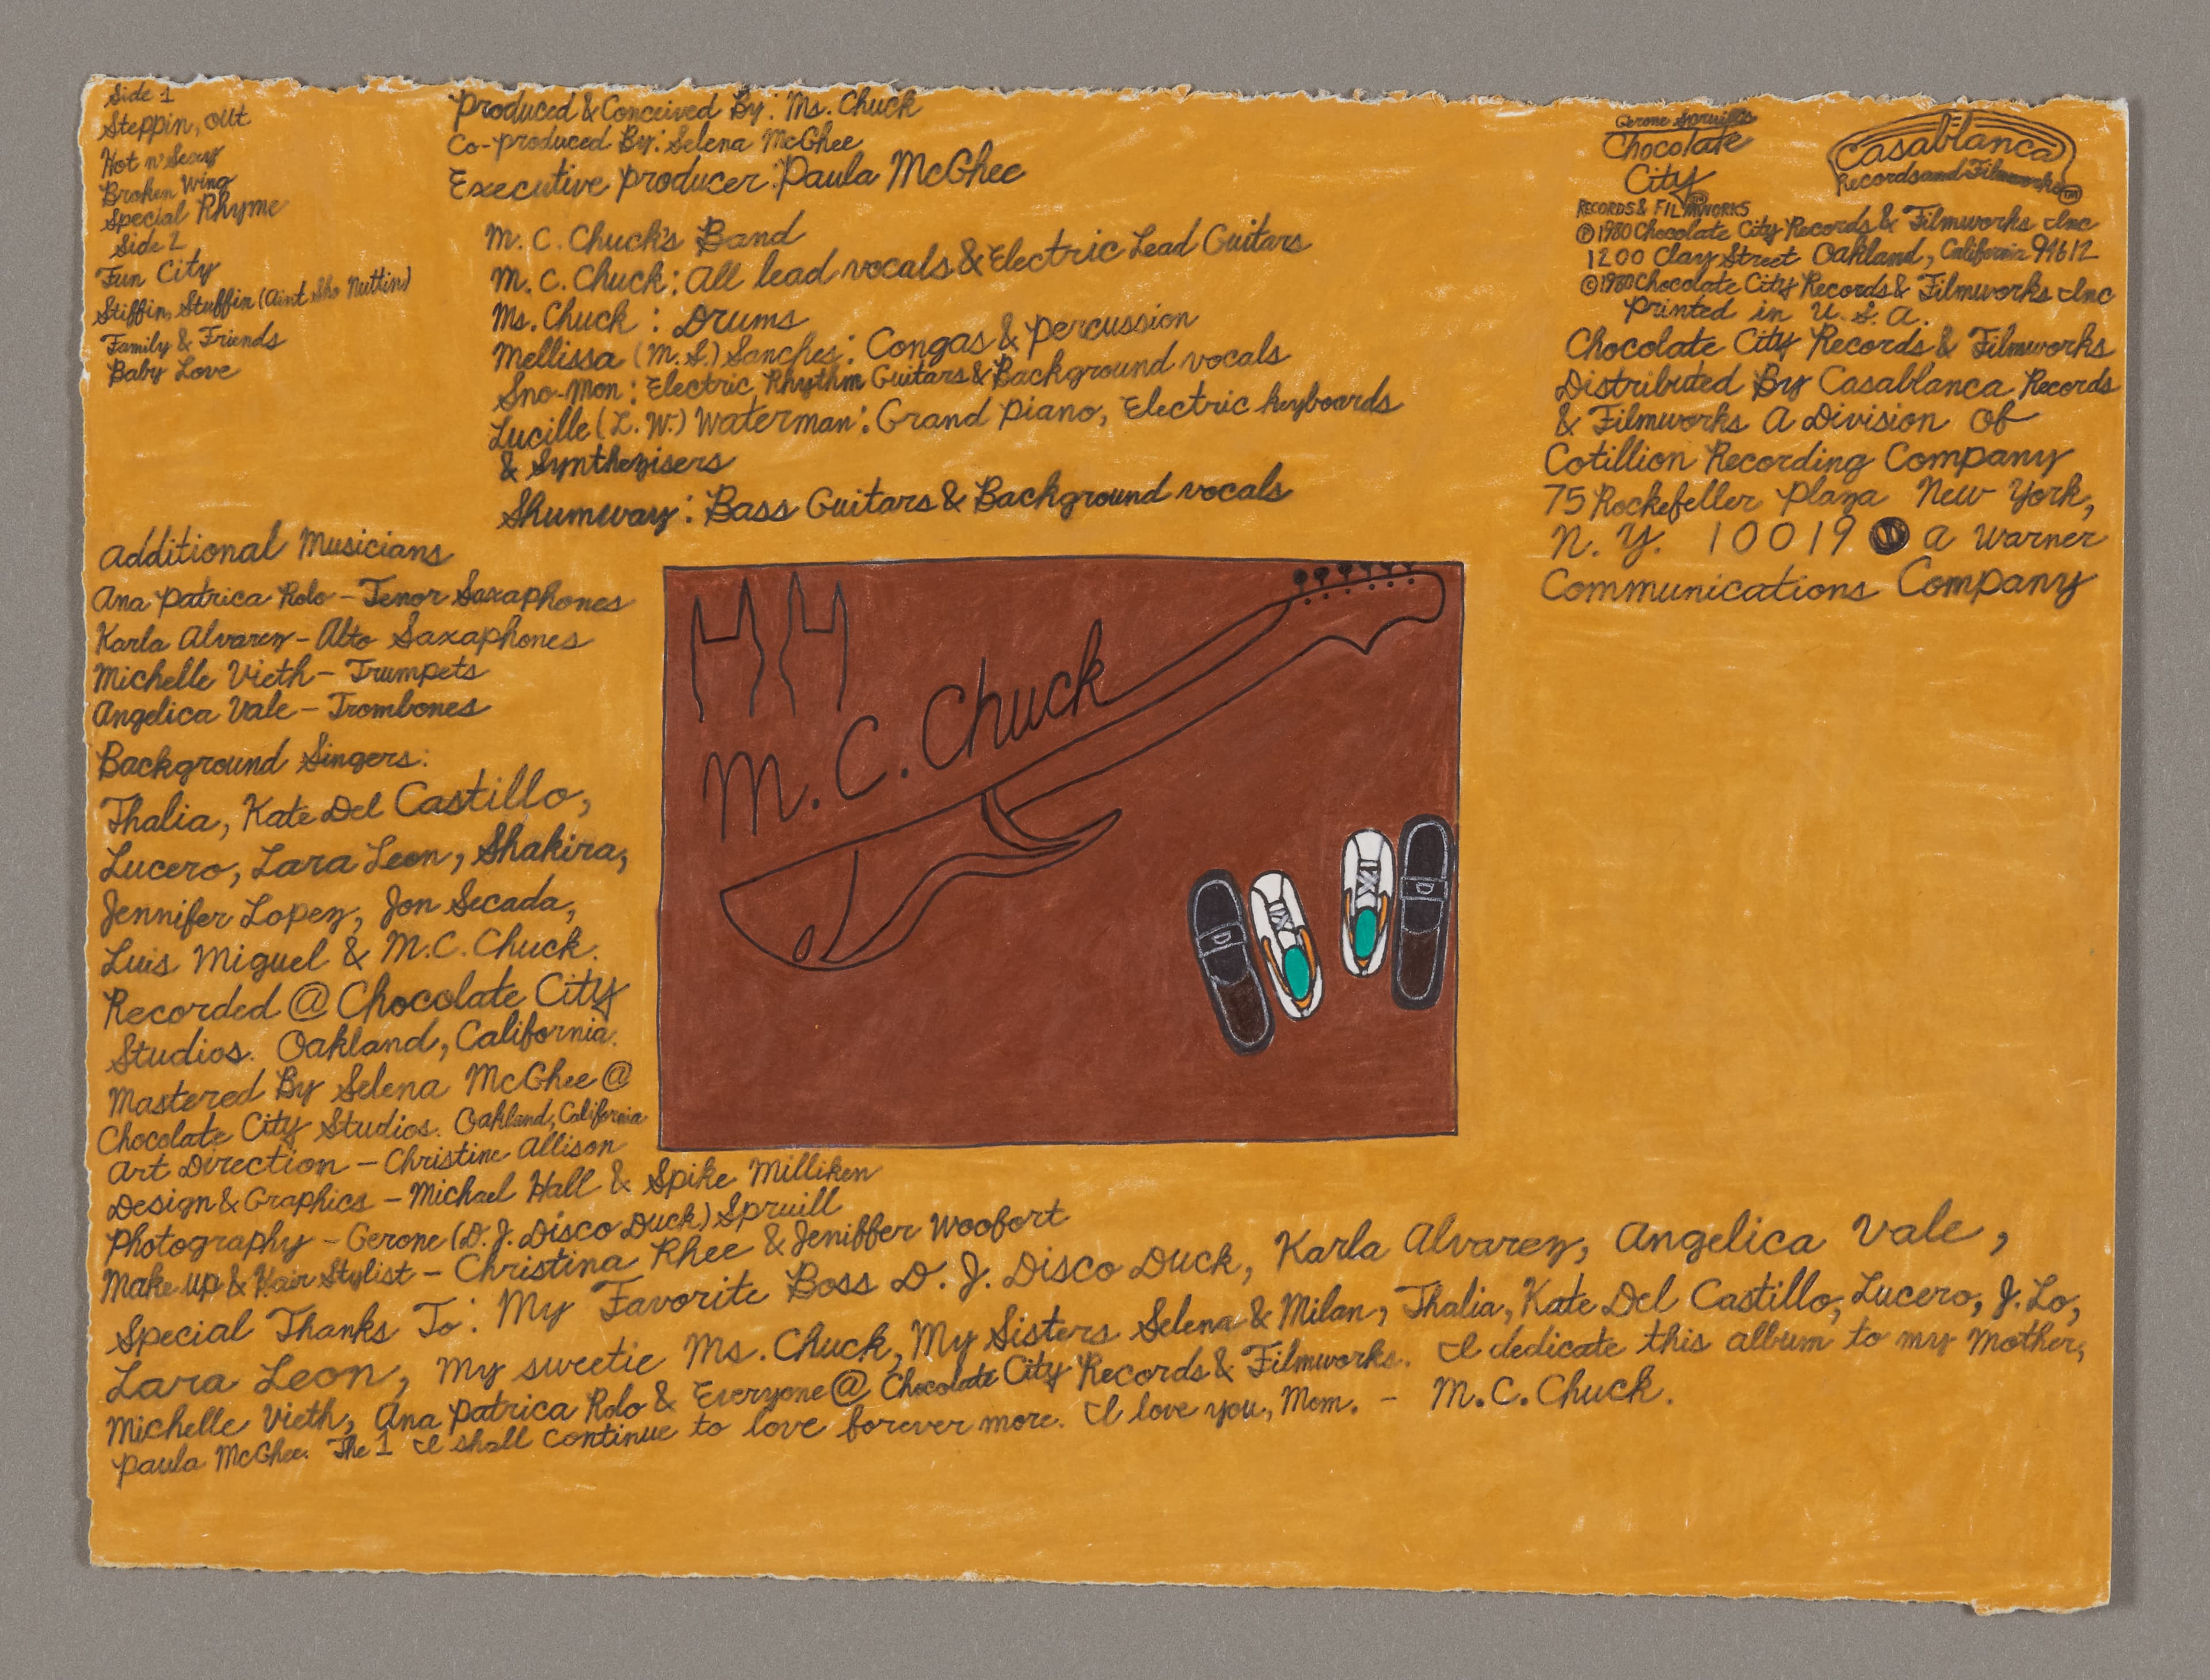 Side 1
Steppin, out
Hot n' Sexy
Broken Wing
Special Rhyme
Side 2
Fun City
Stiffin, Stuffin (Aint Sho Nuttin)
Family & Friends
Baby Love
Produced & Conceived By: Ms. Chuck
Co-produced By: Selena McGhee
Executive producer: Paula McGhee
M. C. Chuck's Band
M. C. Chuck: All lead vocals & Electric Lead Guitars
Ms. Chuck: Drums
Mellissa (M. S.) Sanches: Congas & percussion
Sno-Mon: Electric Rhythm Guitars & Background vocals
Lucille (L. W.) Waterman: Grand piano, Electric keyboards
& Synthezisers
Shumway: Bass Guitars & Background vocals
Gerone Spruill's
Chocolate
City
RECORDS & FILMWORKS
Casablanca
Records and Filmworks TM
℗1980 Chocolate City Records & Filmworks Inc
1200 Clay Street Oakland, California 94612
©1980 Chocolate City Records & Filmworks Inc
Printed in U. S. A.
Chocolate City Records & Filmworks
Distributed By Casablanca Records
& Filmworks A Division Of
Cotillion Recording Company
75 Rockefeller Plaza New York,
N. Y. 10019 a Warner
Communications Company
Additional Musicians
Ana Patrica Rolo - Tenor Saxaphones
Karla Alvarez - Alto Saxaphones
Michelle Vieth - Trumpets
Angelica Vale - Trombones
Background Singers:
Thalia, Kate Del Castillo,
Lucero, Lara Leon, Shakira,
Jennifer Lopez, Jon Secada,
Luis Miguel & M.C. Chuck.
Recorded @ Chocolate City
Studios. Oakland, California.
Mastered By Selena McGhee @
Chocolate City Studios. Oakland, California
Art Direction - Christine Allison
Design & Graphics - Michael Hall & Spike Milliken
Photography - Gerone (D. J. Disco Duck) Spruill
Make up & Hair Stylist - Christina Rhee & Jeniffer Woofort
Special Thanks To: My Favorite Boss D. J. Disco Duck, Karla Alvarez, Angelica Vale,
Lara Leon, My sweetie Ms. Chuck, My Sisters Selena & Milan, Thalia, Kate Del Castillo, Lucero, J. Lo,
Michelle Vieth, Ana Patrica Rolo & Everyone @ Chocolate City Records & Filmworks. I dedicate this album to my Mother,
Paula McGhee. The 1 I shall continue to love forever more. I love you, Mom. - M.C. Chuck.
M. C. Chuck